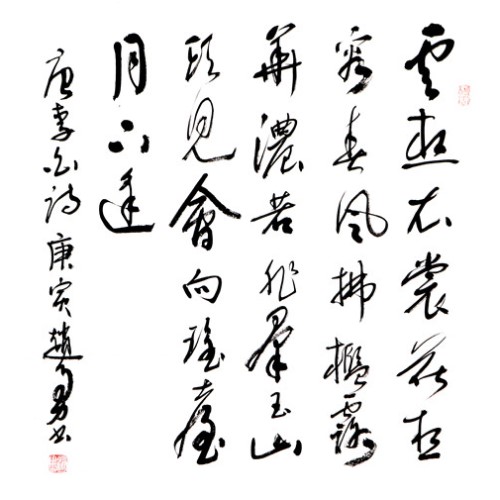 雲想衣裳花想
容春風拂檻露
華濃若非羣玉山
頭見會向瑤臺
月下逢
唐李白詩庚寅趙書